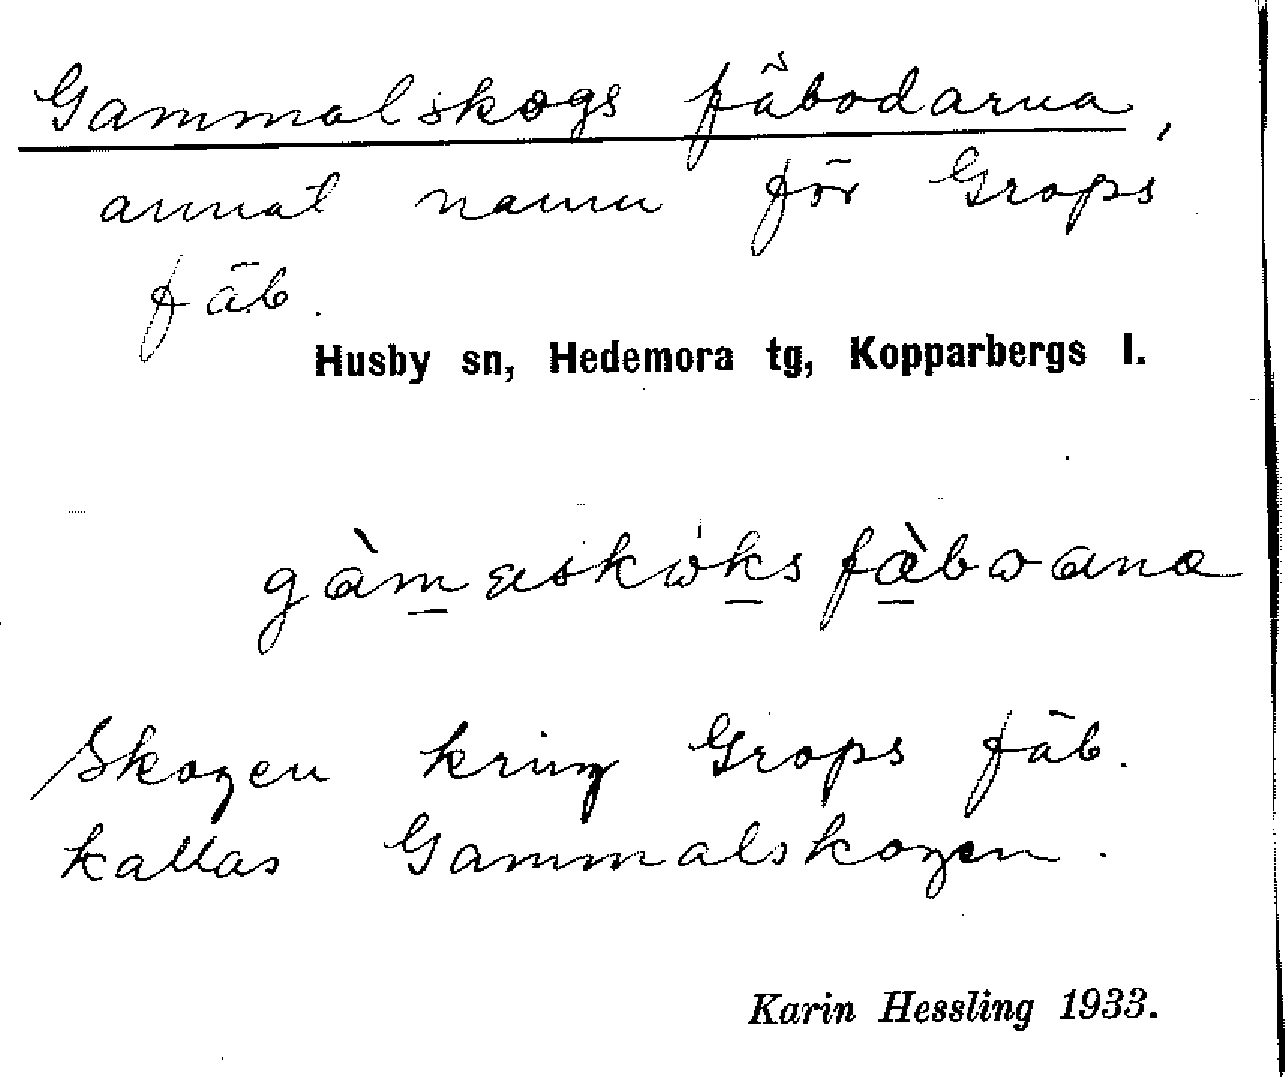 Gammalskogs fäbodarna,
annat namn för Grops
fäb.
Husby sn, Hedemora tg, Kopparbergs l.
Skogen kring Grops fäb.
kallas Gammalskogen.
Karin Hessling 1933.